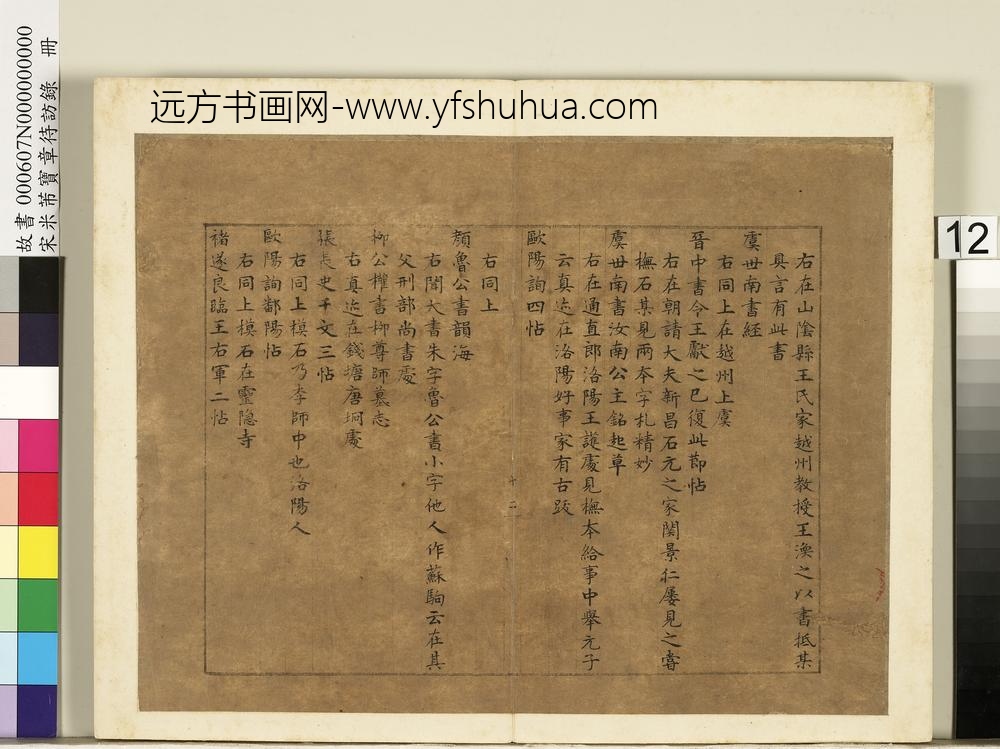 远方书画网-www.yfshuhua.com
故書000607N000000000
宋米芾寶章待訪錄 冊
12
右在山陰縣王氏家越州教授王渙之以書抵某
具言有此書
虞世南書經
右同上在越州上虞
晉中書令王獻之已復此節帖
右在朝請大夫新昌石元之家関景仁屡見之嘗
橅石某見兩本字札精妙
虞世南書汝南公主銘起草
右在通直郎洛陽王護處見橅本給事中舉元子
云真迹在洛陽好事家有古跋
歐陽詢四帖
十二
右同上
顏魯公書韻海
右閣大書朱字魯公書小字他人作蘇駒云在其
父刑部尚書處
柳公權書柳尊師墓志
右真迹在錢塘唐坰處
張長史千文三帖
右同上模石乃李師中也洛陽人
歐陽詢鄱陽帖
右同上模石在靈隐寺
褚遂良臨王右軍二帖